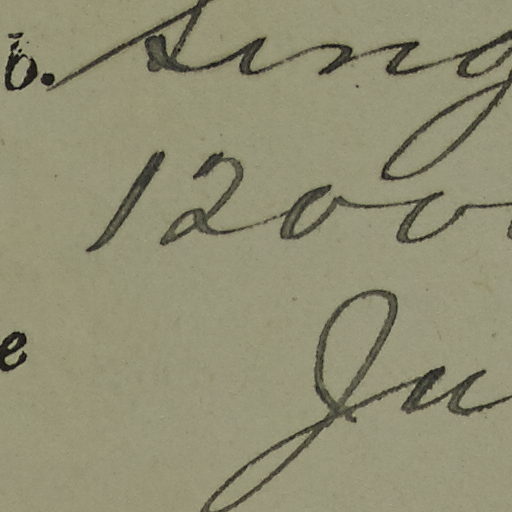 b. Sing
1200
e Ju